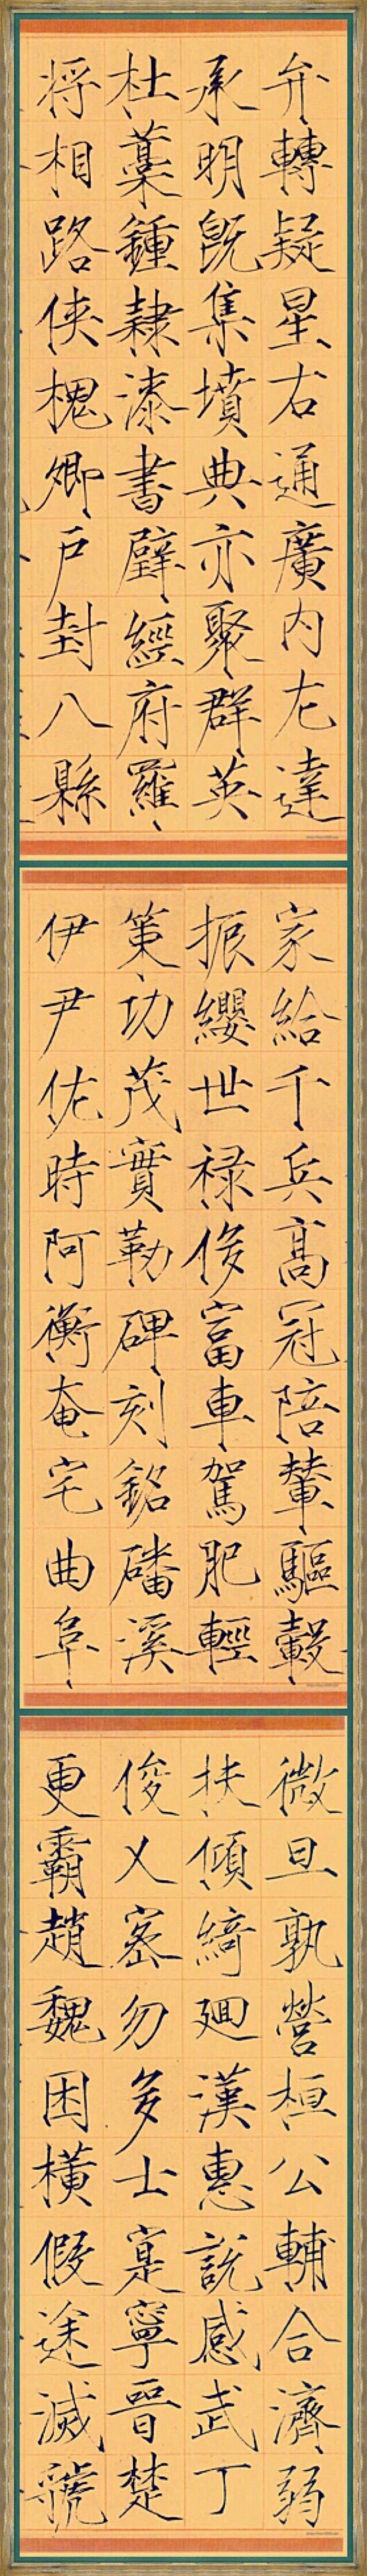 弁轉疑星右通廣内左達
承明既集墳典亦聚群英
杜藁鍾隸漆書壁經府羅
将相路侠槐卿戸封八縣
家給千兵高冠陪輦驅轂
振纓世禄侈富車駕肥輕
策功茂實勒碑刻銘磻溪
伊尹佐時阿衡奄宅曲阜
微旦孰營桓公輔合濟弱
扶傾綺迴漢惠説感武丁
俊乂密勿多士寔寧晉楚
更霸趙魏困橫假途滅虢